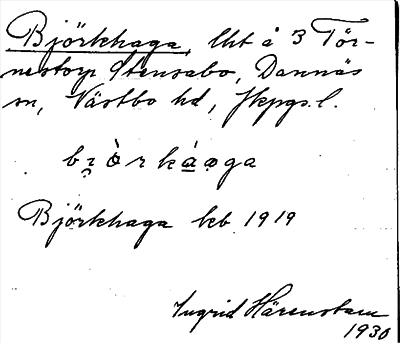 Björkhaga, lht å 3 Tör-
nestorp Stensabo, Dannäs
sn, Västbo hd, Jkpgs. l.
bi̯ò̱rká̱o̱ga
Björkhaga kb 1919
Ingrid Härenstam
1930